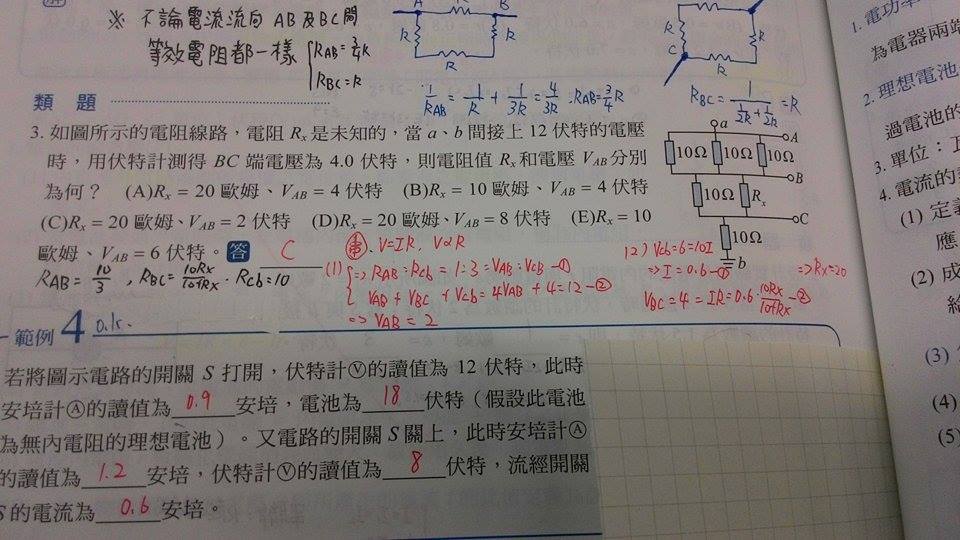 ※ 不論電流流向 AB 及 BC 間
等效電阻都一樣 { RAB=3/4R
RBC=R
A R B
R R
R
R
R
C
R
1/RAB = 1/R + 1/3R = 4/3R . RAB=3/4R
RBC = 1/(1/2R+1/2R) = R
類 題
3. 如圖所示的電阻線路，電阻 Rx 是未知的，當 a、b 間接上 12 伏特的電壓
時，用伏特計測得 BC 端電壓為 4.0 伏特，則電阻值 Rx 和電壓 VAB 分別
為何？ (A)Rx = 20 歐姆、VAB = 4 伏特 (B)Rx = 10 歐姆、VAB = 4 伏特
(C)Rx = 20 歐姆、VAB = 2 伏特 (D)Rx = 20 歐姆、VAB = 8 伏特 (E)Rx = 10
歐姆、VAB = 6 伏特。 答 C
a
A
10Ω 10Ω 10Ω
B
10Ω Rx
C
10Ω
b
RAB = 10/3 , RBC = 10Rx/10+Rx . Rcb=10
串. V=IR, V∝R
(1) { => RAB : Rcb = 1:3 = VAB : VcB -①
VAB + VBC + Vcb = 4VAB + 4 = 12 -②
=> VAB = 2
(2) Vcb=6=10I
=> I = 0.6 -①
VBC = 4 = IR = 0.6 · 10Rx/10+Rx -②
=> Rx=20
範例 4
若將圖示電路的開關 S 打開，伏特計Ⓥ的讀值為 12 伏特，此時
安培計Ⓐ的讀值為 0.9 安培，電池為 18 伏特（假設此電池
為無內電阻的理想電池）。又電路的開關 S 關上，此時安培計Ⓐ
的讀值為 1.2 安培，伏特計Ⓥ的讀值為 8 伏特，流經開關
S 的電流為 0.6 安培。
1. 電功率
為電器兩端
2. 理想電池
過電池的
3. 單位：
4. 電流的
(1) 定義
應
(2) 成
給
(3)
(4)
(5)